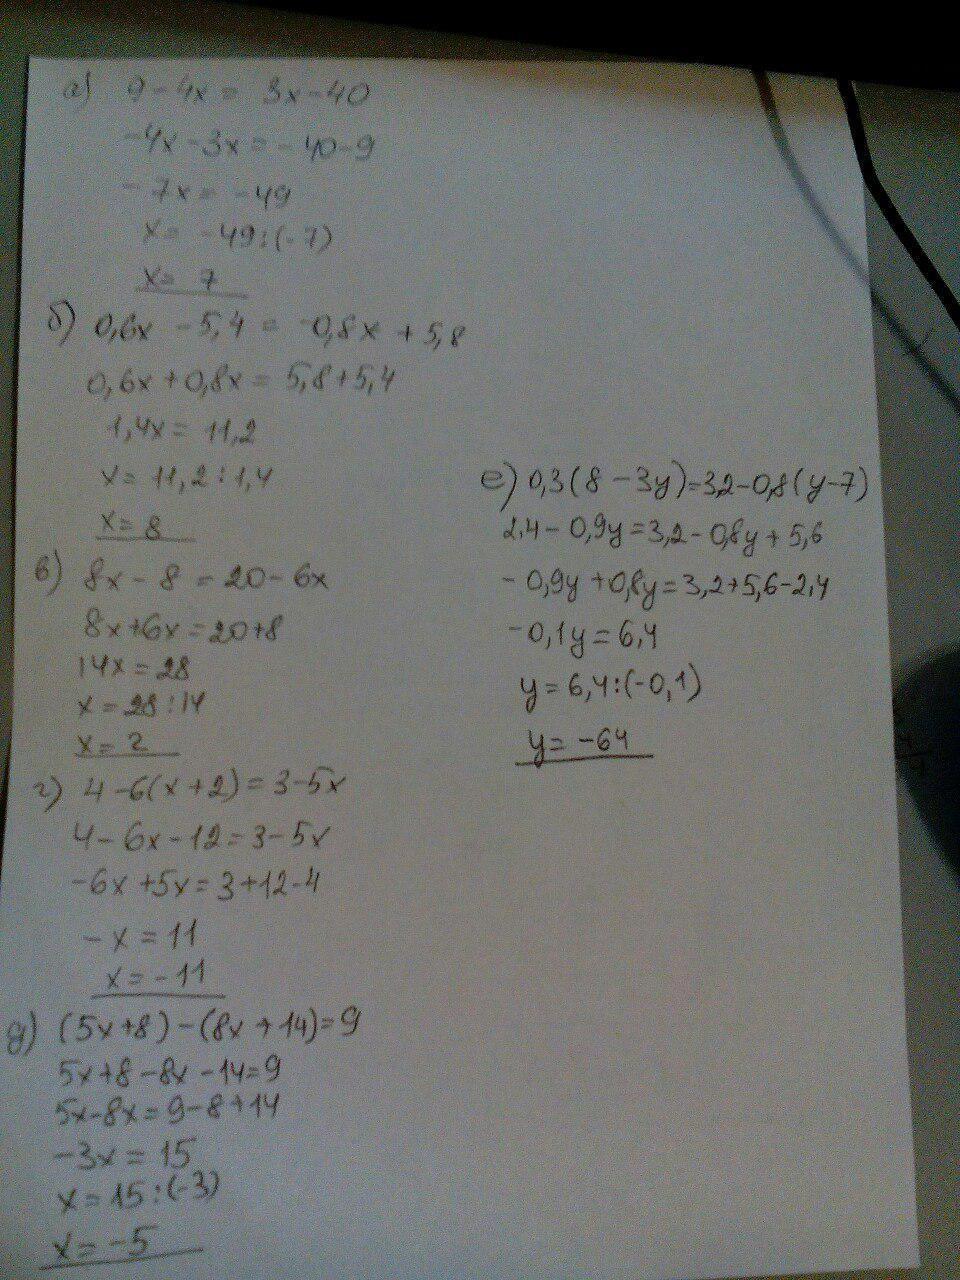 а) 9 - 4x = 3x - 40
-4x - 3x = - 40 - 9
- 7x = - 49
x = - 49 : (- 7)
x = 7
б) 0,6x - 5,4 = -0,8x + 5,8
0,6x + 0,8x = 5,8 + 5,4
1,4x = 11,2
x = 11,2 : 1,4
x = 8
в) 8x - 8 = 20 - 6x
8x + 6x = 20 + 8
14x = 28
x = 28 : 14
x = 2
г) 4 - 6(x + 2) = 3 - 5x
4 - 6x - 12 = 3 - 5x
-6x + 5x = 3 + 12 - 4
- x = 11
x = - 11
д) (5x + 8) - (8x + 14) = 9
5x + 8 - 8x - 14 = 9
5x - 8x = 9 - 8 + 14
-3x = 15
x = 15 : (-3)
x = -5
е) 0,3(8 - 3y) = 3,2 - 0,8(y - 7)
2,4 - 0,9y = 3,2 - 0,8y + 5,6
- 0,9y + 0,8y = 3,2 + 5,6 - 2,4
-0,1y = 6,4
y = 6,4 : (-0,1)
y = -64